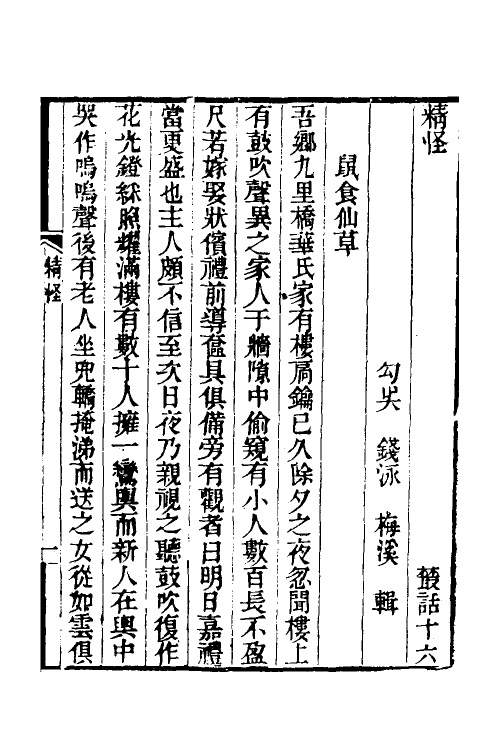 精怪 叢話十六
勾吳 錢泳 梅溪 輯
鼠食仙草
吾鄉九里橋華氏家有樓扃鑰已久除夕之夜忽聞樓上
有鼓吹聲異之家人于牆隙中偷窺有小人數百長不盈
尺若嫁娶狀儐禮前導奩具俱備旁有觀者曰明日嘉禮
當更盛也主人頗不信至次日夜乃親視之聽鼓吹復作
花光鐙綵照耀滿樓有數十人擁一鸞輿而新人在輿中
哭作嗚嗚聲後有老人坐兜轎掩涕而送之女從如雲俱
精怪 一